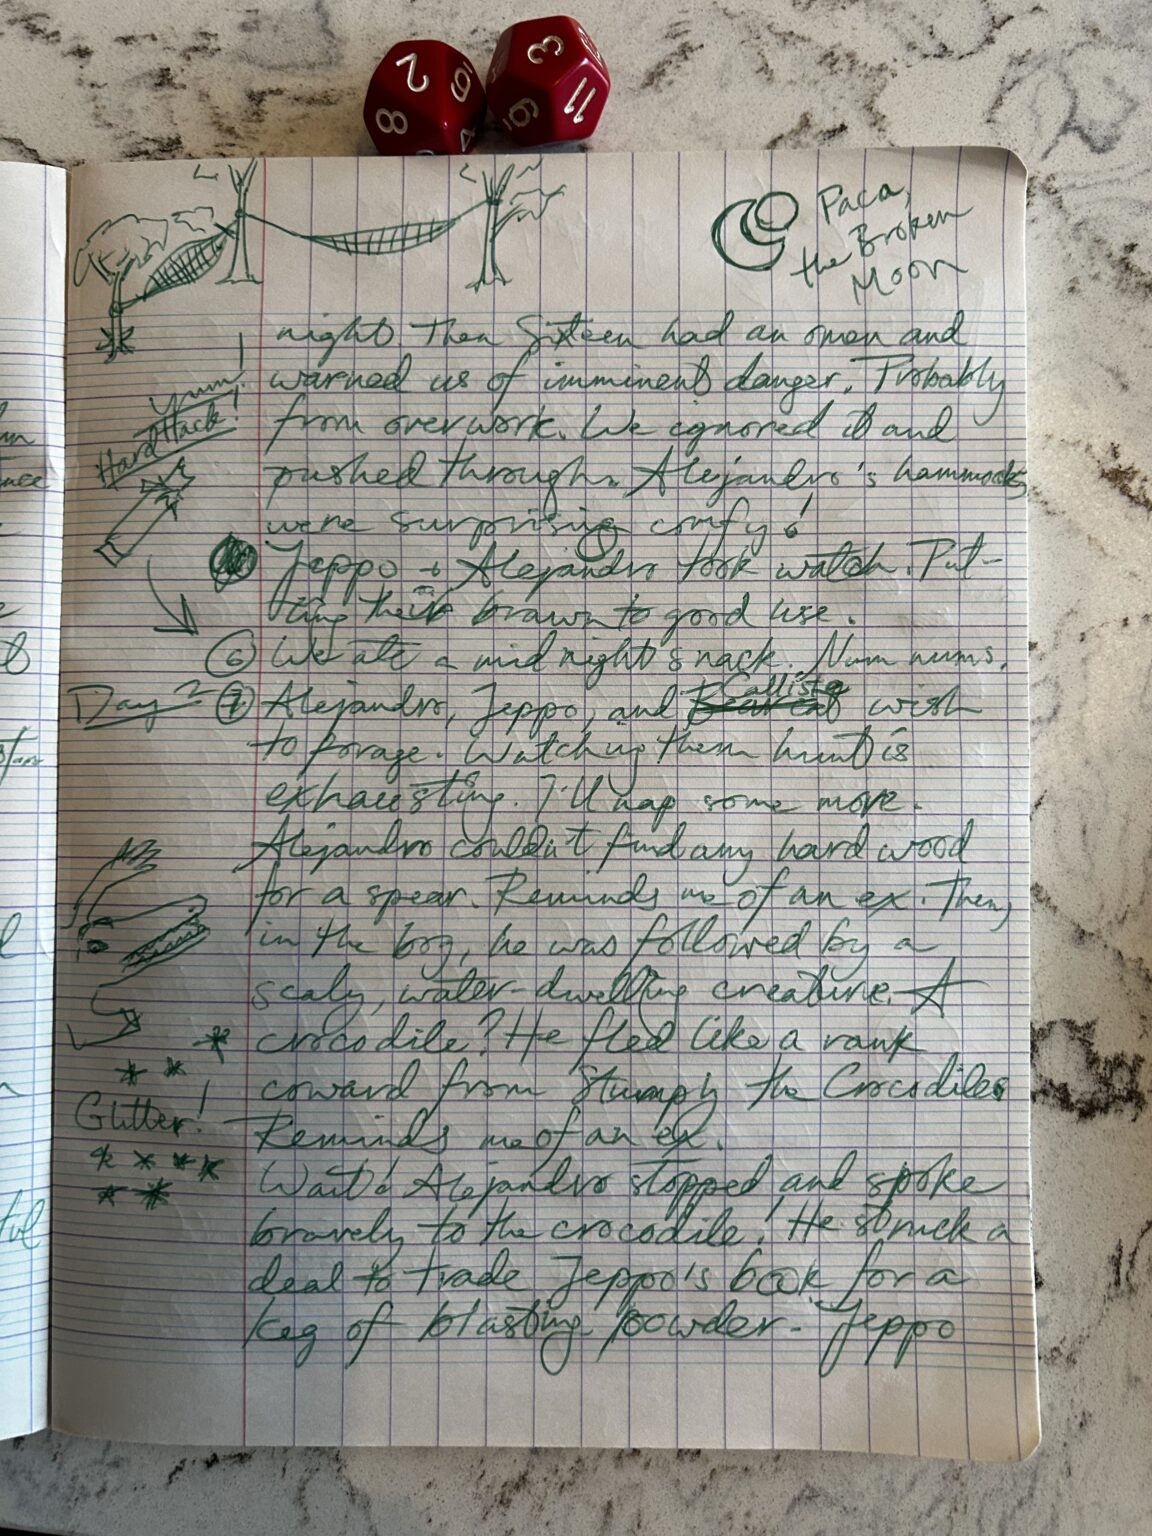 2
8
3
11
Paca,
the Broken
Moon
night. Then Sixteen had an omen and
warned us of imminent danger. Probably
from overwork. We ignored it and
pushed through. Alejandro's hammocks
were surprising comfy!
Yum!
Hard tack!
Jeppo + Alejandro took watch. Put-
ting their brawn to good use.
6 We ate a midnight snack. Num nums.
Day 2 7 Alejandro, Jeppo, and Callista wish
to forage. Watching them hunt is
exhausting. I'll nap some more.
Alejandro couldn't find any hard wood
for a spear. Reminds me of an ex. Then,
in the bog, he was followed by a
scaly, water-dwelling creature. A
crocodile? He fled like a rank
coward from Stumpy the Crocodile.
Glitter!
Reminds me of an ex.
Wait! Alejandro stopped and spoke
bravely to the crocodile! He struck a
deal to trade Jeppo's book for a
keg of blasting powder. Jeppo